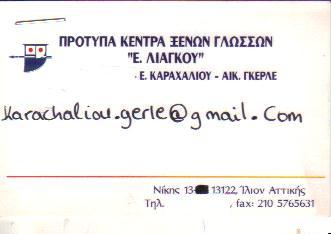 ΠΡΟΤΥΠΑ ΚΕΝΤΡΑ ΞΕΝΩΝ ΓΛΩΣΣΩΝ
"Ε. ΛΙΑΓΚΟΥ"
· Ε. ΚΑΡΑΧΑΛΙΟΥ - ΑΙΚ. ΓΚΕΡΛΕ
karachaliou.gerle@gmail.com
Νίκης 13 13122, Ίλιον Αττικής
Τηλ. , fax: 210 5765631